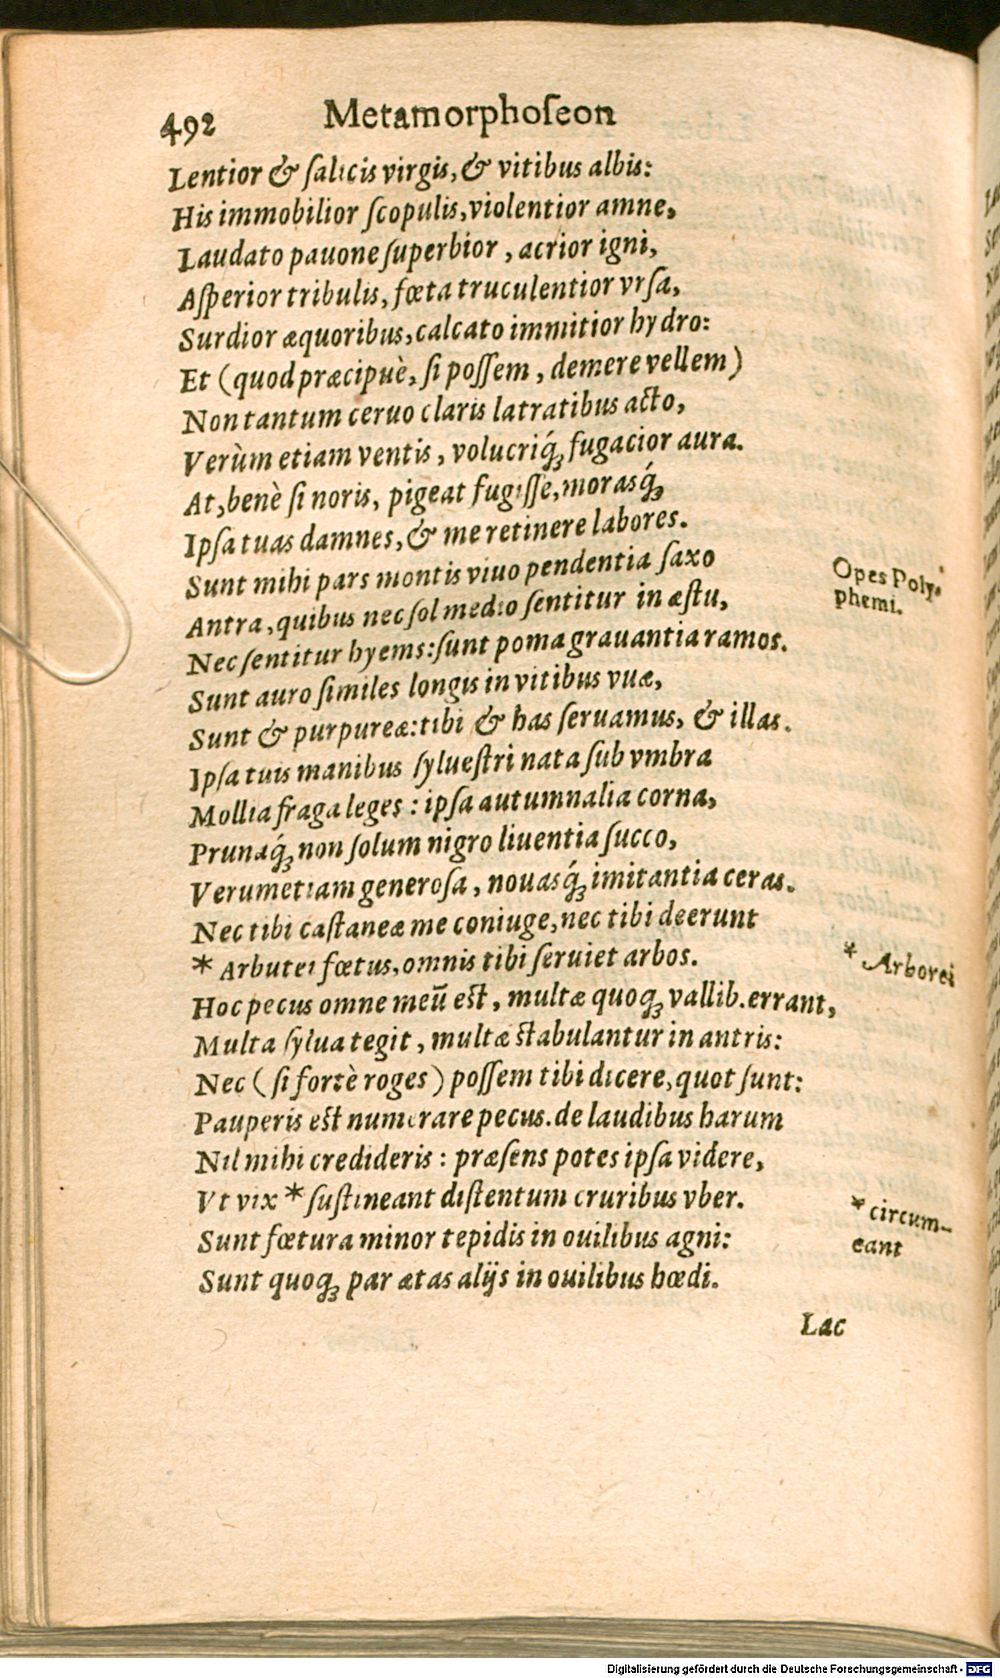 492 Metamorphoſeon
Lentior & ſalicis virgis, & vitibus albis:
His immobilior ſcopulis, violentior amne,
Laudato pauone ſuperbior, acrior igni,
Aſperior tribulis, fœta truculentior vrſa,
Surdior æquoribus, calcato immitior hydro:
Et (quod præcipuè, ſi poſſem, demere vellem)
Non tantum ceruo claris latratibus acto,
Verùm etiam ventis, volucriq́ꝫ fugacior aura.
At, benè ſi noris, pigeat fugiſſe, morasq́ꝫ
Ipſa tuas damnes, & me retinere labores.
Sunt mihi pars montis viuo pendentia ſaxo
Opes Poly-
phemi.
Antra, quibus nec ſol medio ſentitur in æſtu,
Nec ſentitur hyems: ſunt poma grauantia ramos.
Sunt auro ſimiles longis in vitibus vuæ,
Sunt & purpureæ: tibi & has ſeruamus, & illas.
Ipſa tuis manibus ſylueſtri nata ſub vmbra
Mollia fraga leges: ipſa autumnalia corna,
Prunaq́ꝫ non ſolum nigro liuentia ſucco,
Verumetiam generoſa, nouasq́ꝫ imitantia ceras.
Nec tibi caſtaneæ me coniuge, nec tibi deerunt
* Arbutei fœtus, omnis tibi ſeruiet arbos.
* Arborei
Hoc pecus omne meū eſt, multæ quoqꝫ vallib. errant,
Multa ſylua tegit, multæ ſtabulantur in antris:
Nec (ſi fortè roges) poſſem tibi dicere, quot ſunt:
Pauperis eſt numerare pecus. de laudibus harum
Nil mihi credideris: præſens potes ipſa videre,
Vt vix * ſuſtineant diſtentum cruribus vber.
* circum-
eant
Sunt fœtura minor tepidis in ouilibus agni:
Sunt quoqꝫ par ætas alijs in ouilibus hœdi.
Lac
Digitalisierung gefördert durch die Deutsche Forschungsgemeinschaft - DFG